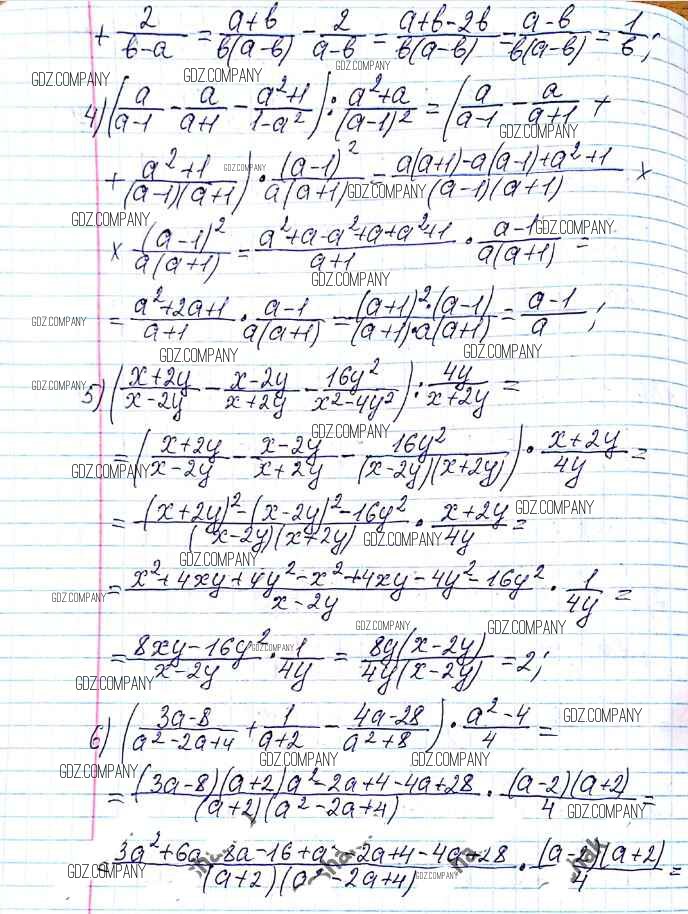 + 2/(b-a) = (a+b)/(b(a-b)) - 2/(a-b) = (a+b-2b)/(b(a-b)) = (a-b)/(b(a-b)) = 1/b;
GDZ.COMPANY GDZ.COMPANY GDZ.COMPANY
4) (a/(a-1) - a/(a+1) - (a²+1)/(1-a²)) : (a²+a)/(a-1)² = (a/(a-1) - a/(a+1) +
GDZ.COMPANY
+ (a²+1)/((a-1)(a+1))) · (a-1)²/(a(a+1)) = (a(a+1)-a(a-1)+a²+1)/((a-1)(a+1)) ×
GDZ.COMPANY GDZ.COMPANY
GDZ.COMPANY
× (a-1)²/(a(a+1)) = (a²+a-a²+a+a²+1)/(a+1) · (a-1)/(a(a+1)) =
GDZ.COMPANY
GDZ.COMPANY
= (a²+2a+1)/(a+1) · (a-1)/(a(a+1)) = ((a+1)²·(a-1))/((a+1)·a(a+1)) = (a-1)/a;
GDZ.COMPANY
GDZ.COMPANY GDZ.COMPANY
5) ((x+2y)/(x-2y) - (x-2y)/(x+2y) - 16y²/(x²-4y²)) : 4y/(x+2y) =
GDZ.COMPANY
GDZ.COMPANY
= ((x+2y)/(x-2y) - (x-2y)/(x+2y) - 16y²/((x-2y)(x+2y))) · (x+2y)/4y =
GDZ.COMPANY GDZ.COMPANY
= ((x+2y)²-(x-2y)²-16y²)/((x-2y)(x+2y)) · (x+2y)/4y =
GDZ.COMPANY
GDZ.COMPANY
GDZ.COMPANY
= (x²+4xy+4y²-x²+4xy-4y²-16y²)/(x-2y) · 1/4y =
GDZ.COMPANY
GDZ.COMPANY GDZ.COMPANY
= (8xy-16y²)/(x-2y) · 1/4y = 8y(x-2y)/(4y(x-2y)) = 2;
GDZ.COMPANY
GDZ.COMPANY
6) ((3a-8)/(a²-2a+4) + 1/(a+2) - (4a-28)/(a²+8)) · (a²-4)/4 =
GDZ.COMPANY
GDZ.COMPANY GDZ.COMPANY GDZ.COMPANY
= ((3a-8)(a+2)a²-2a+4-4a+28)/((a+2)(a²-2a+4)) · (a-2)(a+2)/4 =
GDZ.COMPANY
= (3a²+6a-8a-16+a²-2a+4-4a+28)/((a+2)(a²-2a+4)) · (a-2)(a+2)/4 =
GDZ.COMPANY GDZ.COMPANY GDZ.COMPANY